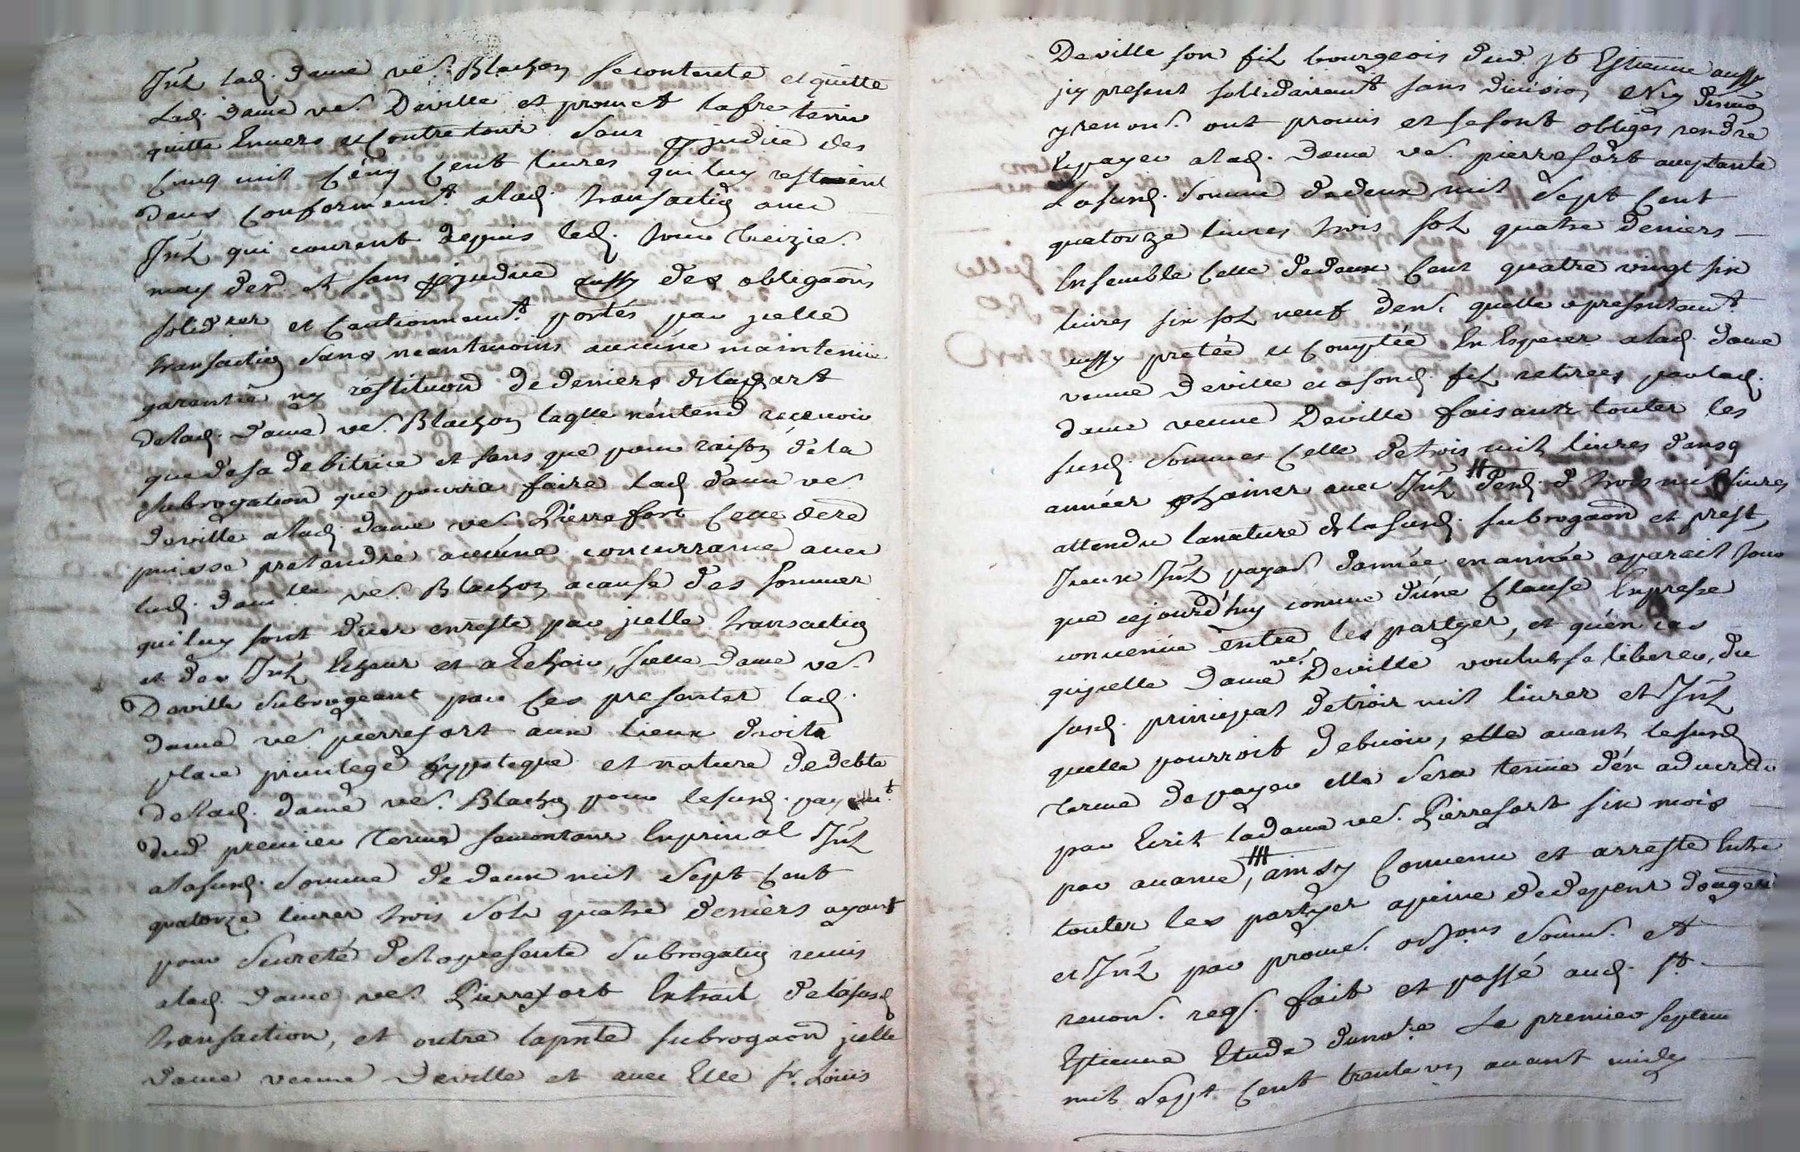 Jnt lad. dame ve. Blachon se contente et quitte
Lad. dame ve. Deville et promet la fre tenir
quitte Envers et Contre tous sans pjudice des
Cinq mil Cinq Cent livres qui luy restoient
deus Conformemt. a lad. transaction avec
Jnt qui courent depuis led. jour treizie.
may der et sans pjudice aussy des obligaons
solidres et Cautionnemt. portés par jcelle
transaction sans neantmoins aucune maintenue
garantie ny restituon de deniers de la part
de lad. dame ve. Blachon laqlle n'entend recevoir
que de sa debitrice et sans que pour raison de la
subrogation que pourra faire lad. dame ve.
deville a lad. dame ve. Pierrefort Cette dere
puisse pretendre aucune concurrance avec
lad. dame ve. Blachon a cause des sommes
qui luy sont dues en reste par jcelle transaction
et des Jnt Echeus et a Echoir, jcelle dame ve.
Deville subrogeant par Ces presentes lad.
dame ve. pierrefort aux lieux droits
place privilege hypoteque et nature de debte
de lad. dame ve. Blachon pour le susd. payemt.
dud. premier terme se montant En prinal Jnt
a la susd. somme de deux mil sept Cent
quatorze livres trois sols quatre deniers ayant
pour sureté de la presente subrogation remis
a lad. dame ve. Pierrefort Extrait de la susd.
transaction, et outre la pnte subrogaon jcelle
dame veuve Deville et avec Elle sr. Louis
Deville son fils bourgeois dud. st Estienne aussy
jcy present sollidairemt. sans division
y renont. ont promis et se sont obliges rendre
Et payer a lad. dame ve. pierrefort acceptante
La susd. somme de deux mil sept Cent
quatorze livres trois sols quatre deniers
Ensemble Celle de deux Cent quatre vingt six
livres six sols neuf dens. quelle a presentemt.
aussy pretée et Comptée En Especes a lad. dame
veuve deville et a sond. fils retirees par lad.
dame veuve Deville faisant toutes les
susd. sommes Celle de trois mil livres dans
années prochaines avec Jnt desd. trois mil livres
attendu la nature de la susd. subrogaon et prest,
Jceux Jnt payab. d'année en année a partir
que cejourd'huy comme d'une Clause Expresse
convenue entre les partyes, et qu'en cas
qu'jcelle dame ve. Deville voulut se liberer, du
susd. principal de trois mil livres et Jnt
quelle pourroit debvoir, elle avant le susd.
terme de payer elle sera tenue d'en advertir
par Ecrit la dame ve. Pierrefort six mois
par avance, ainsy Convenu et arresté Entre
toutes les partyes a peine de depens domages
et Jnt par promes. obligons soums. et
renons. reqs. fait et passé aud. st.
Estienne Etude du nore. Le premier septemb
mil sept Cent trente un avant midy